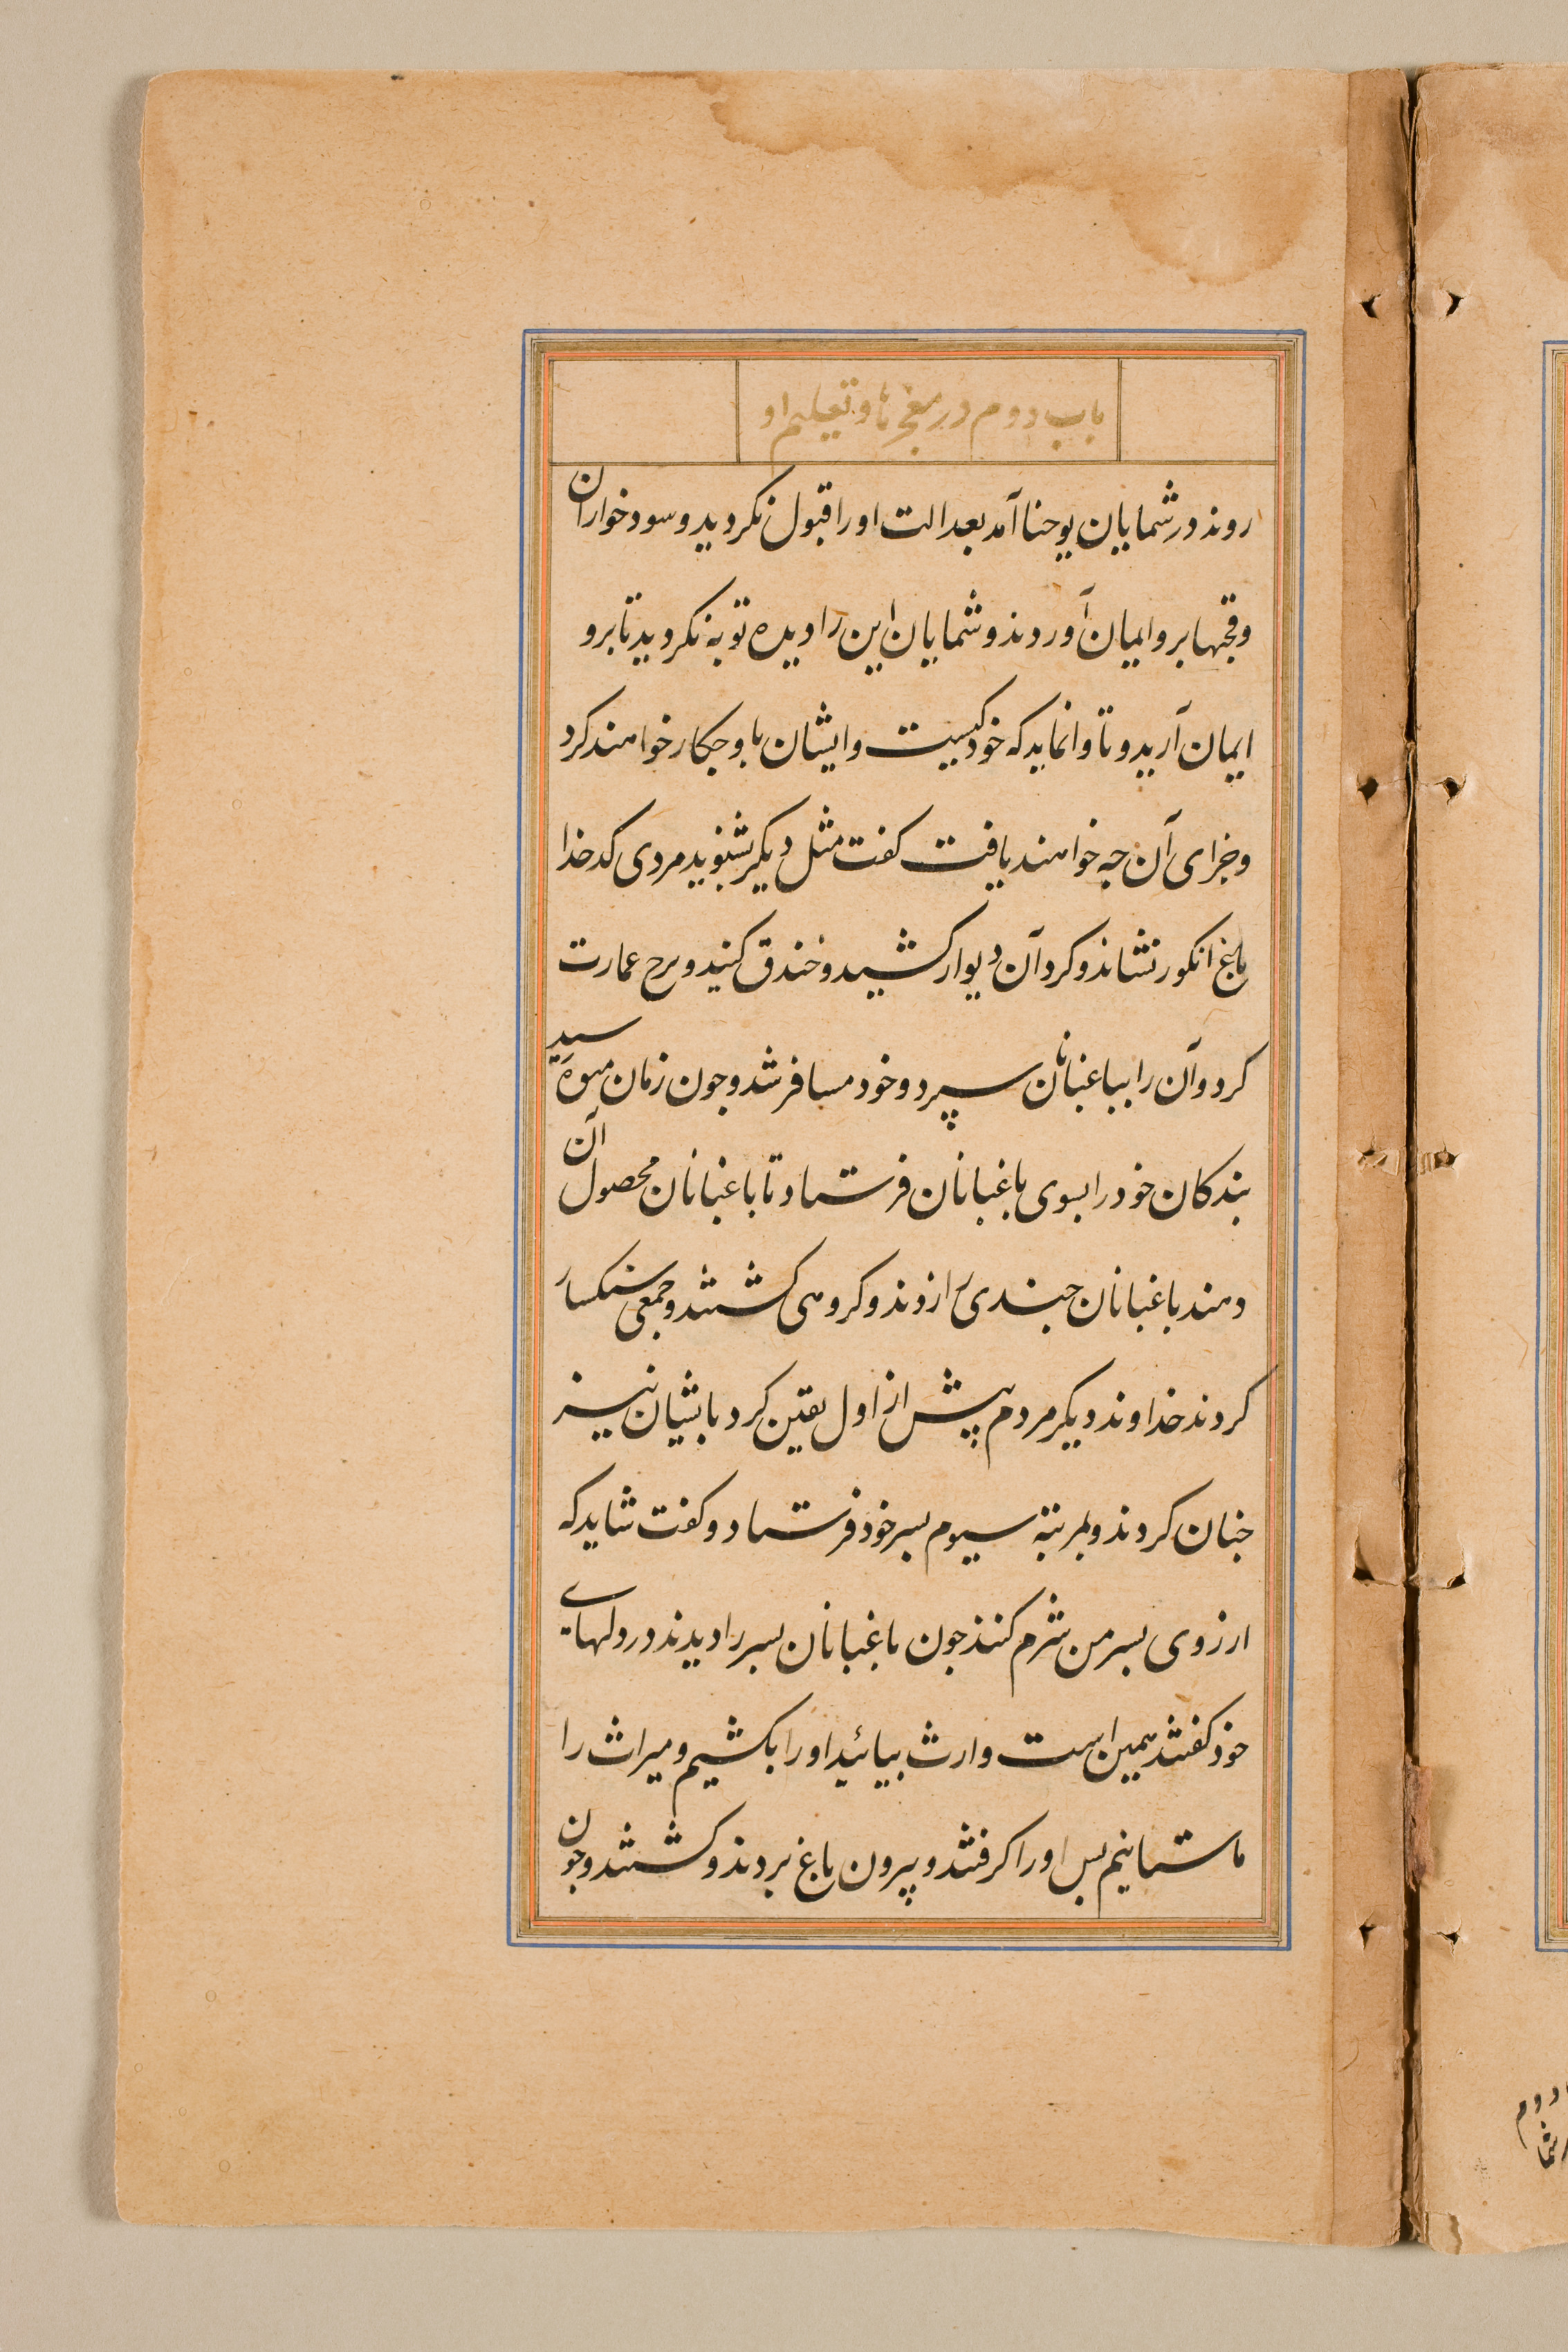 باب دوم در معجزها و تعلیم او
روند در شمایان یوحنا آمد بعدالت اورا قبول نکردید و سودخواران
و قحبها برو ایمان آوردند و شمایان این را دیده توبه نکردید تا برو
ایمان آرید و تا وانماید که خود کیست و ایشان باو جکار خواهند کرد
و جزای آن جه خواهند یافت کفت مثل دیکر بشنوید مردی کدخدا
باغ انکور نشاند و کرد آن دیوار کشید و خندق کنید و برج عمارت
کرد و آن را بباغبانان سپرد و خود مسافر شد و جون زمان میوه رسید
بندکان خود را بسوی باغبانان فرستاد تا باغبانان محصول آن
دهند باغبانان جندی را زدند و کروهی کشتند و جمعی سنکسار
کردند خداوند دیکر مردم پیش از اول یقین کرد باشیان نیز
جنان کردند و بمرتبه سیوم بسر خود فرستاد و کفت شاید که
از روی بسر من شرم کنند جون باغبانان بسر را دیدند در دلهای
خود کفتند همین است وارث بیائید اورا بکشیم و میراث را
ما ستانیم بس اورا کرفتند و بیرون باغ بردند و کشتند و جون
دوم